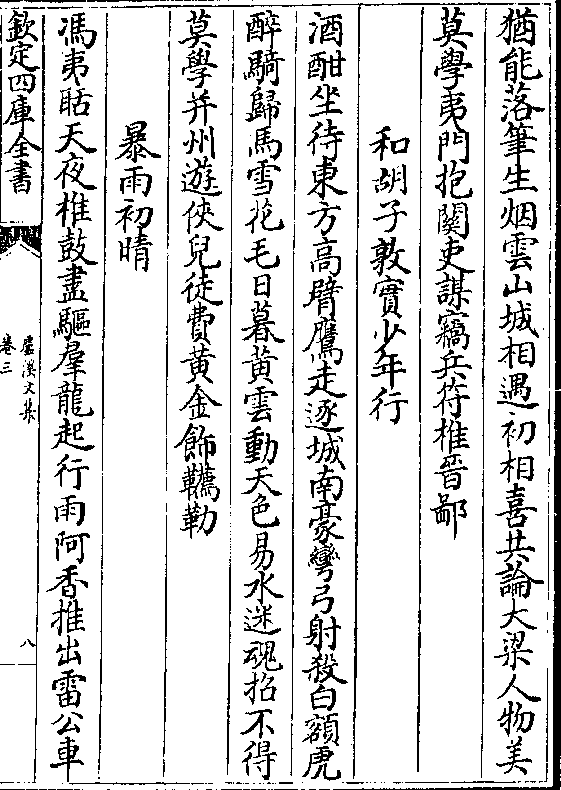 猶能落筆生烟雲山城相遇初相喜共論大梁人物美
莫學夷門抱關吏謀竊兵符椎晉鄙
和胡子敦實少年行
酒酣坐待東方高臂鷹走逐城南豪彎弓射殺白額虎
醉騎歸馬雪花毛日暮黄雲動天色易水迷魂招不得
莫學并州遊俠兒徒費黄金飾韉勒
暴雨初晴
馮夷聒天夜椎鼓盡驅羣龍起行雨阿香推出雷公車
欽定四庫全書
盧溪文集
卷三
八